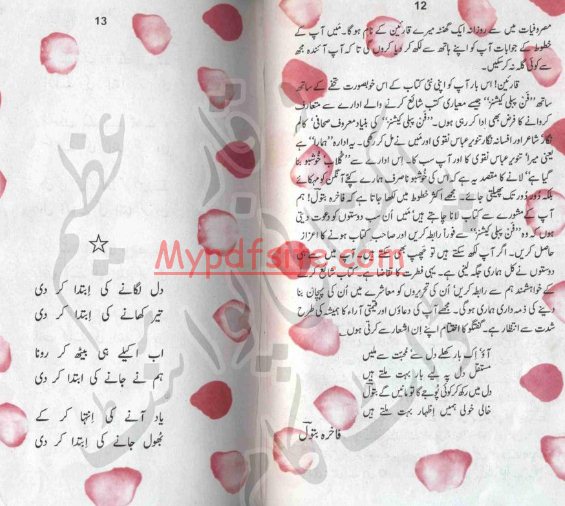 12
مصروفیات میں سے روزانہ ایک گھنٹہ میرے قارئین کے نام ہو گا۔ میں آپ کے
خطوط کے جوابات آپ کو اپنے ہاتھ سے لکھ کر دیا کروں گی تا کہ آپ آئندہ مجھ
سے کوئی گلہ نہ کر سکیں۔
قارئین! اس بار آپ کو اپنی نئی کتاب کے اس خوبصورت تحفے کے ساتھ
ساتھ ”فن پبلی کیشنز“ جیسے معیاری کتب شائع کرنے والے ادارے سے متعارف
کروانے کا فرض بھی ادا کر رہی ہوں۔ ”فن پبلی کیشنز“ کی بنیاد معروف صحافی، کالم
نگار، شاعر اور افسانہ نگار تنویر عباس نقوی اور میں نے مل کر رکھی۔ یہ ادارہ ”ہمارا“ ہے
یعنی میرا، تنویر عباس نقوی کا اور آپ سب کا۔ اس ادارے سے ”گلاب خوشبو بنا
گیا ہے“ لانے کا مقصد یہ ہے کہ اس کی خوشبو نا صرف ہمارے کچے آنگن کو مہکائے
بلکہ دور دور تک پھیلتی جائے۔ مجھے اکثر خطوط میں لکھا جاتا ہے کہ فاخرہ بتول! ہم
آپ کے مشورے سے کتاب لانا چاہتے ہیں میں اُن سب دوستوں کو دعوت دیتی
ہوں کہ وہ ”فن پبلی کیشنز“ سے فوراً رابطہ کریں اور صاحبِ کتاب ہونے کا اعزاز
حاصل کریں۔ اگر آپ لکھ سکتے ہیں تو چھپ بھی سکتے ہیں۔ آپ میں سے ہی
دوستوں نے کل ہماری جگہ لینی ہے۔ یہی فطرت کا تقاضا ہے۔ کتاب شائع کرنے
کے خواہشمند ہم سے رابطہ کریں، اُن کی تحریروں کو معاشرے میں اُن کی پہچان بنا
دینے کی ذمہ داری ہماری ہو گی۔ مجھے آپ کی دعاؤں اور قیمتی آراء کا ہمیشہ کی طرح
شدت سے انتظار ہے۔ گفتگو کا اختتام اپنے اِن اشعار سے کرتی ہوں۔
آؤ اک بار کھلے دل سے محبت سے ملیں
مستقل دل پہ لیے بار بہت ملتے ہیں
دل میں رکھ کر کوئی پوجے گا تو مانیں گے بتول
خالی خولی ہمیں اظہار بہت ملتے ہیں
فاخرہ بتول
13
دل لگانے کی ابتدا کر دی
تیر کھانے کی ابتدا کر دی
اب اکیلے ہی بیٹھ کر رونا
ہم نے جانے کی ابتدا کر دی
یاد آنے کی انتہا کر کے
بھول جانے کی ابتدا کر دی
Mypdfsite.com